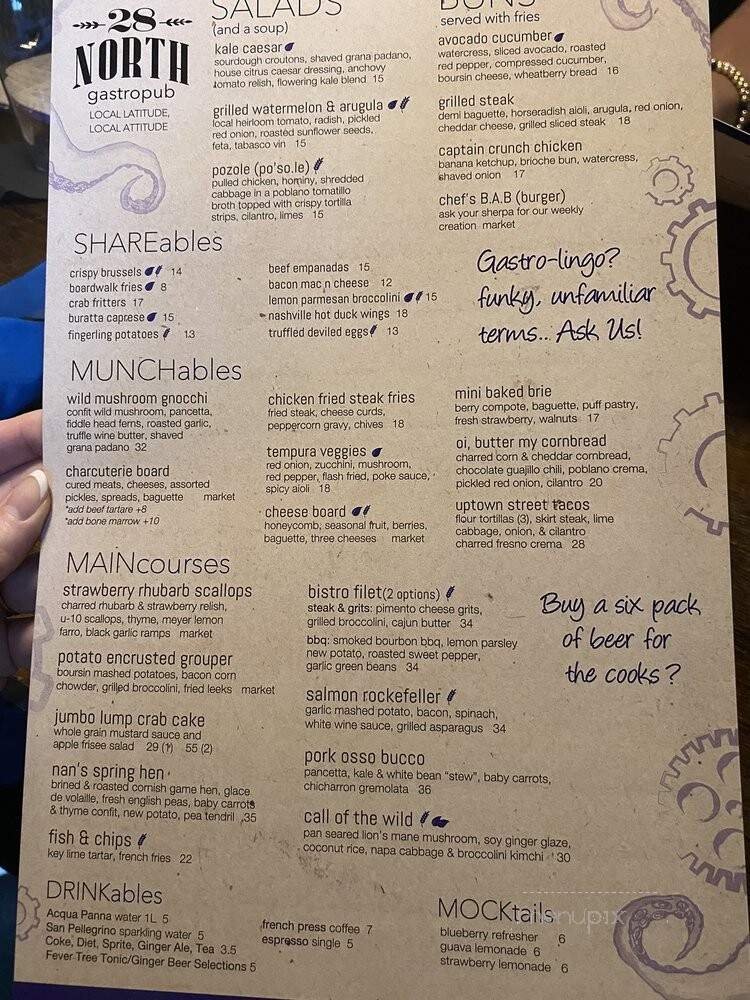 28
NORTH
gastropub
LOCAL LATITUDE,
LOCAL ATTITUDE
SALADS
(and a soup)
kale caesar
sourdough croutons, shaved grana padano,
house citrus caesar dressing, anchovy
tomato relish, flowering kale blend 15
grilled watermelon & arugula
local heirloom tomato, radish, pickled
red onion, roasted sunflower seeds,
feta, tabasco vin 15
pozole (po'so.le)
pulled chicken, hominy, shredded
cabbage in a poblano tomatillo
broth topped with crispy tortilla
strips, cilantro, limes 15
BUNS
served with fries
avocado cucumber
watercress, sliced avocado, roasted
red pepper, compressed cucumber,
boursin cheese, wheatberry bread 16
grilled steak
demi baguette, horseradish aioli, arugula, red onion,
cheddar cheese, grilled sliced steak 18
captain crunch chicken
banana ketchup, brioche bun, watercress,
shaved onion 17
chef's B.A.B (burger)
ask your sherpa for our weekly
creation market
SHAREables
crispy brussels 14
boardwalk fries 8
crab fritters 17
buratta caprese 15
fingerling potatoes 13
beef empanadas 15
bacon mac n cheese 12
lemon parmesan broccolini 15
nashville hot duck wings 18
truffled deviled eggs 13
Gastro-lingo?
funky, unfamiliar
terms... Ask Us!
MUNCHables
wild mushroom gnocchi
confit wild mushroom, pancetta,
fiddle head ferns, roasted garlic,
truffle wine butter, shaved
grana padano 32
charcuterie board
cured meats, cheeses, assorted
pickles, spreads, baguette market
*add beef tartare +8
*add bone marrow +10
chicken fried steak fries
fried steak, cheese curds,
peppercorn gravy, chives 18
tempura veggies
red onion, zucchini, mushroom,
red pepper, flash fried, poke sauce,
spicy aioli 18
cheese board
honeycomb, seasonal fruit, berries,
baguette, three cheeses market
mini baked brie
berry compote, baguette, puff pastry,
fresh strawberry, walnuts 17
oi, butter my cornbread
charred corn & cheddar cornbread,
chocolate guajillo chili, poblano crema,
pickled red onion, cilantro 20
uptown street tacos
flour tortillas (3), skirt steak, lime
cabbage, onion, & cilantro
charred fresno crema 28
MAINcourses
strawberry rhubarb scallops
charred rhubarb & strawberry relish,
u-10 scallops, thyme, meyer lemon
farro, black garlic ramps market
potato encrusted grouper
boursin mashed potatoes, bacon corn
chowder, grilled broccolini, fried leeks market
jumbo lump crab cake
whole grain mustard sauce and
apple frisee salad 29 (1) 55 (2)
nan's spring hen
brined & roasted cornish game hen, glace
de volaille, fresh english peas, baby carrots
& thyme confit, new potato, pea tendril 35
fish & chips
key lime tartar, french fries 22
bistro filet(2 options)
steak & grits: pimento cheese grits,
grilled broccolini, cajun butter 34
bbq: smoked bourbon bbq, lemon parsley
new potato, roasted sweet pepper,
garlic green beans 34
salmon rockefeller
garlic mashed potato, bacon, spinach,
white wine sauce, grilled asparagus 34
pork osso bucco
pancetta, kale & white bean "stew", baby carrots,
chicharron gremolata 36
call of the wild
pan seared lion's mane mushroom, soy ginger glaze,
coconut rice, napa cabbage & broccolini kimchi 30
Buy a six pack
of beer for
the cooks?
DRINKables
Acqua Panna water 1L 5
San Pellegrino sparkling water 5
Coke, Diet, Sprite, Ginger Ale, Tea 3.5
Fever Tree Tonic/Ginger Beer Selections 5
french press coffee 7
espresso single 5
MOCKtails
blueberry refresher 6
guava lemonade 6
strawberry lemonade 6
menupix